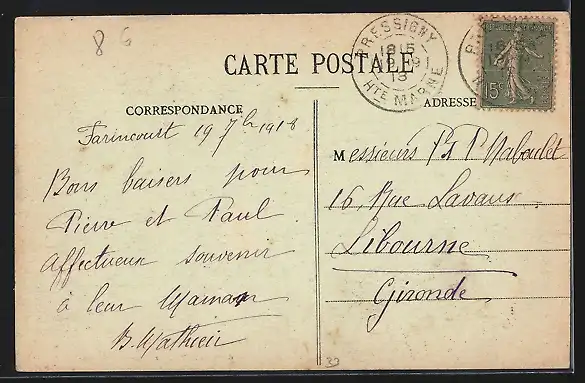 8 6
PRESSIGNY
18 15
19 -9
18
HTE MARNE
15c
CARTE POSTALE
CORRESPONDANCE
ADRESSE
Farincourt 19 7bre 1918
Bons baisers pour
Pierre et Paul
Affectueux souvenir
à leur Maman
B. Mathieu
Messieurs P. P. Naboulet
16, Rue Lavaux
Libourne
Gironde
33